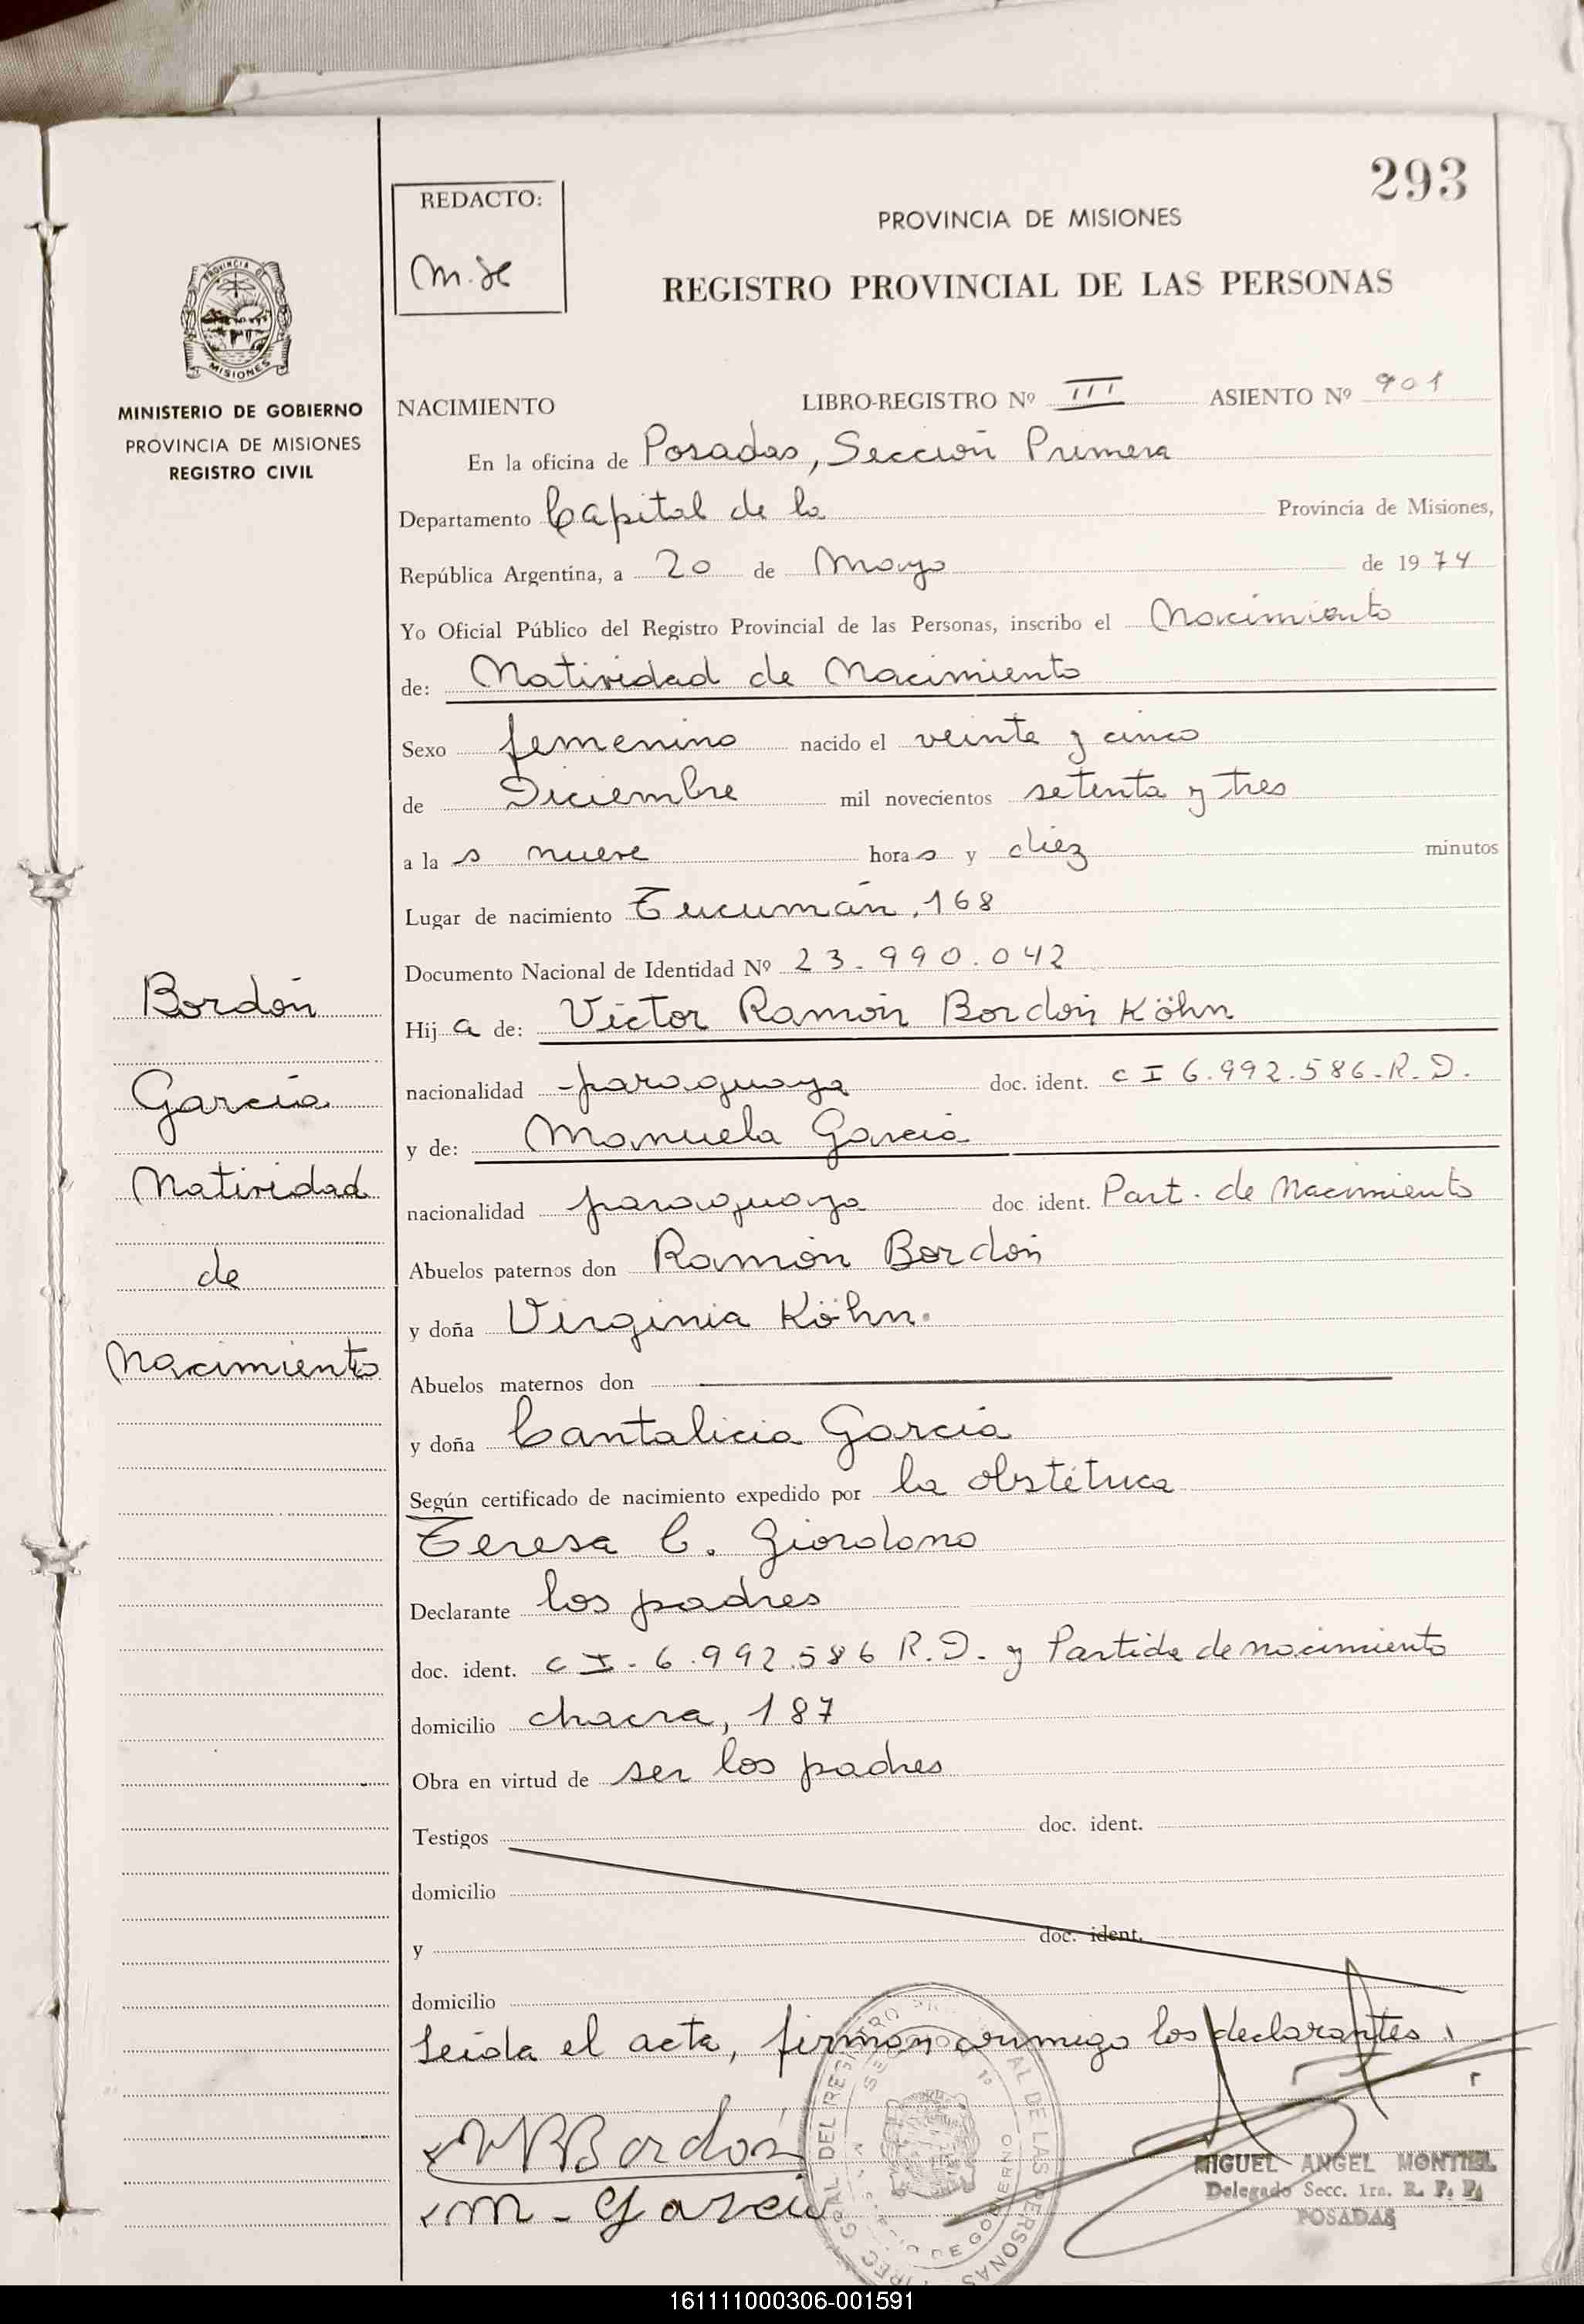 293
REDACTO:
PROVINCIA DE MISIONES
REGISTRO PROVINCIAL DE LAS PERSONAS
PROVINCIA DE
MISIONES
MINISTERIO DE GOBIERNO
PROVINCIA DE MISIONES
REGISTRO CIVIL
NACIMIENTO LIBRO-REGISTRO Nº III ASIENTO Nº 901
En la oficina de Posadas, Sección Primera
Departamento Capital de la Provincia de Misiones,
República Argentina, a 20 de Mayo de 1974
Yo Oficial Público del Registro Provincial de las Personas, inscribo el Nacimiento
de: Natividad de Nacimiento
Sexo femenino nacido el veinte y cinco
de Diciembre mil novecientos setenta y tres
a la s nueve hora s y diez minutos
Lugar de nacimiento Tucumán, 168
Documento Nacional de Identidad Nº 23.990.042
Hij a de: Victor Ramón Bordón Köhn
nacionalidad paraguaya doc. ident. C I 6.992.586-R.D.
y de: Manuela García
nacionalidad paraguaya doc. ident. Part. de Nacimiento
Abuelos paternos don Ramón Bordón
y doña Virginia Köhn.
Abuelos maternos don
y doña Cantalicia García
Según certificado de nacimiento expedido por la obstétrica
Teresa C. Giordano
Declarante los padres
doc. ident. C I - 6.992.586 R.D. y Partida de nacimiento
domicilio chacra, 187
Obra en virtud de ser los padres
Testigos doc. ident.
domicilio
y doc. ident.
domicilio
Leída el acta, firman conmigo los declarantes.
Bordón
García
Natividad
de
Nacimiento
VRBordón
M - García
MIGUEL ANGEL MONTIEL
Delegado Secc. 1ra. R. P. P.
POSADAS
161111000306-001591